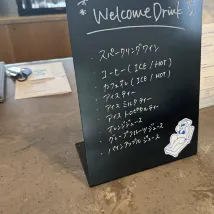 * Welcome Drink *
・スパークリングワイン
・コーヒー (ICE / HOT)
・カフェオレ (ICE / HOT)
・アイスティー
・アイスミルクティー
・アイストロピカルティー
・オレンジジュース
・グレープフルーツジュース
・パインアップルジュース